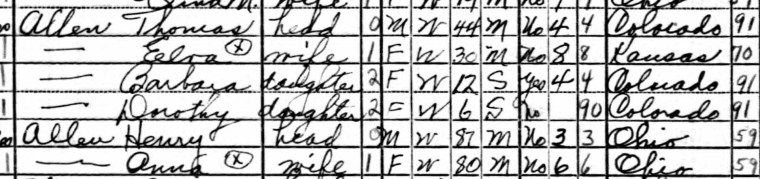 Allen Thomas head 0 M W 44 M No 4 4 Colorado 91
— Eelva ⓧ wife 1 F W 30 M No 8 8 Kansas 70
— Barbara daughter 2 F W 12 S Yes 4 4 Colorado 91
— Dorothy daughter 2 F W 6 S No 90 Colorado 91
Allen Henry head 0 M W 81 M No 3 3 Ohio 59
— Anna ⓧ wife 1 F W 80 M No 6 6 Ohio 59